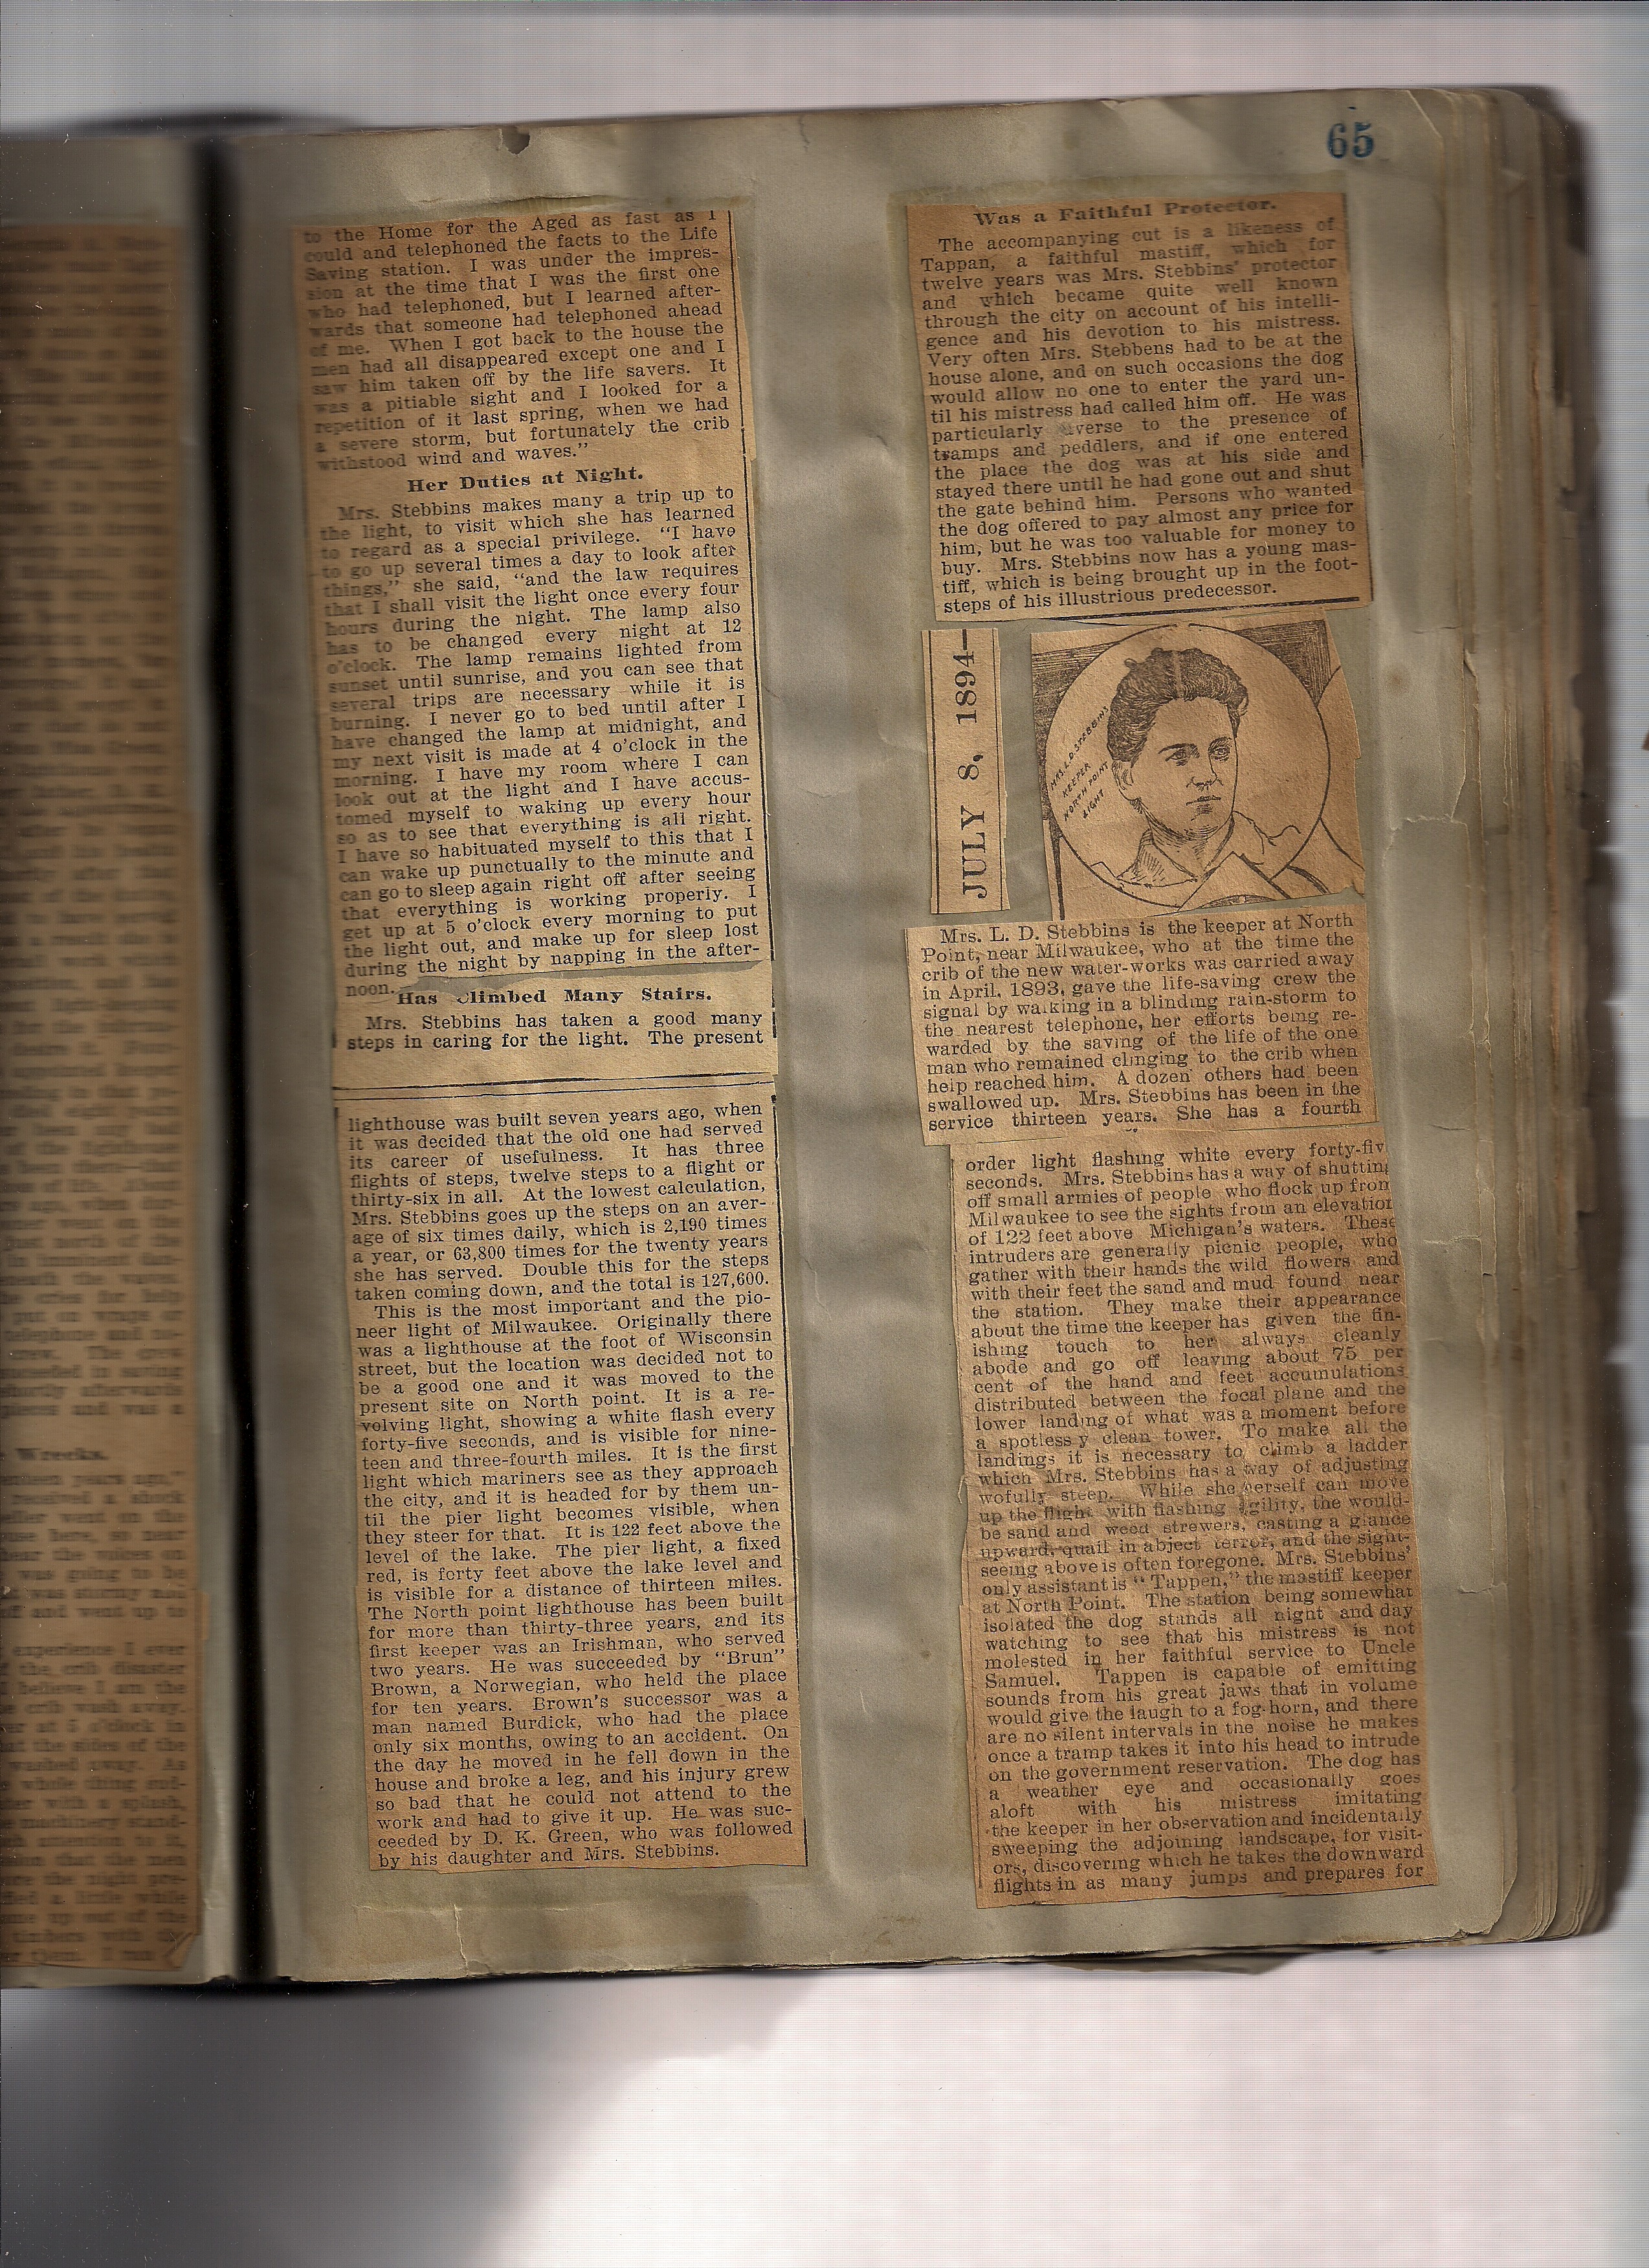 65
to the Home for the Aged as fast as I
could and telephoned the facts to the Life
Saving station. I was under the impres-
sion at the time that I was the first one
who had telephoned, but I learned after-
wards that someone had telephoned ahead
of me. When I got back to the house the
men had all disappeared except one and I
saw him taken off by the life savers. It
was a pitiable sight and I looked for a
repetition of it last spring, when we had
a severe storm, but fortunately the crib
withstood wind and waves."
Her Duties at Night.
Mrs. Stebbins makes many a trip up to
the light, to visit which she has learned
to regard as a special privilege. "I have
to go up several times a day to look after
things," she said, "and the law requires
that I shall visit the light once every four
hours during the night. The lamp also
has to be changed every night at 12
o'clock. The lamp remains lighted from
sunset until sunrise, and you can see that
several trips are necessary while it is
burning. I never go to bed until after I
have changed the lamp at midnight, and
my next visit is made at 4 o'clock in the
morning. I have my room where I can
look out at the light and I have accus-
tomed myself to waking up every hour
so as to see that everything is all right.
I have so habituated myself to this that I
can wake up punctually to the minute and
can go to sleep again right off after seeing
that everything is working properly. I
get up at 5 o'clock every morning to put
the light out, and make up for sleep lost
during the night by napping in the after-
noon.
Has Climbed Many Stairs.
Mrs. Stebbins has taken a good many
steps in caring for the light. The present
lighthouse was built seven years ago, when
it was decided that the old one had served
its career of usefulness. It has three
flights of steps, twelve steps to a flight or
thirty-six in all. At the lowest calculation,
Mrs. Stebbins goes up the steps on an aver-
age of six times daily, which is 2,190 times
a year, or 63,800 times for the twenty years
she has served. Double this for the steps
taken coming down, and the total is 127,600.
This is the most important and the pio-
neer light of Milwaukee. Originally there
was a lighthouse at the foot of Wisconsin
street, but the location was decided not to
be a good one and it was moved to the
present site on North point. It is a re-
volving light, showing a white flash every
forty-five seconds, and is visible for nine-
teen and three-fourth miles. It is the first
light which mariners see as they approach
the city, and it is headed for by them un-
til the pier light becomes visible, when
they steer for that. It is 122 feet above the
level of the lake. The pier light, a fixed
red, is forty feet above the lake level and
is visible for a distance of thirteen miles.
The North point lighthouse has been built
for more than thirty-three years, and its
first keeper was an Irishman, who served
two years. He was succeeded by "Brun"
Brown, a Norwegian, who held the place
for ten years. Brown's successor was a
man named Burdick, who had the place
only six months, owing to an accident. On
the day he moved in he fell down in the
house and broke a leg, and his injury grew
so bad that he could not attend to the
work and had to give it up. He was suc-
ceeded by D. K. Green, who was followed
by his daughter and Mrs. Stebbins.
Was a Faithful Protector.
The accompanying cut is a likeness of
Tappan, a faithful mastiff, which for
twelve years was Mrs. Stebbins' protector
and which became quite well known
through the city on account of his intelli-
gence and his devotion to his mistress.
Very often Mrs. Stebbens had to be at the
house alone, and on such occasions the dog
would allow no one to enter the yard un-
til his mistress had called him off. He was
particularly averse to the presence of
tramps and peddlers, and if one entered
the place the dog was at his side and
stayed there until he had gone out and shut
the gate behind him. Persons who wanted
the dog offered to pay almost any price for
him, but he was too valuable for money to
buy. Mrs. Stebbins now has a young mas-
tiff, which is being brought up in the foot-
steps of his illustrious predecessor.
JULY 8, 1894—
MRS. L. D. STEBBINS
KEEPER
NORTH POINT
LIGHT
Mrs. L. D. Stebbins is the keeper at North
Point, near Milwaukee, who at the time the
crib of the new water-works was carried away
in April, 1893, gave the life-saving crew the
signal by walking in a blinding rain-storm to
the nearest telephone, her efforts being re-
warded by the saving of the life of the one
man who remained clinging to the crib when
help reached him. A dozen others had been
swallowed up. Mrs. Stebbins has been in the
service thirteen years. She has a fourth
order light flashing white every forty-fiv
seconds. Mrs. Stebbins has a way of shutting
off small armies of people who flock up from
Milwaukee to see the sights from an elevation
of 122 feet above Michigan's waters. These
intruders are generally picnic people, who
gather with their hands the wild flowers and
with their feet the sand and mud found near
the station. They make their appearance
about the time the keeper has given the fin-
ishing touch to her always cleanly
abode and go off leaving about 75 per
cent of the hand and feet accumulations
distributed between the focal plane and the
lower landing of what was a moment before
a spotless y clean tower. To make all the
landings it is necessary to climb a ladder
which Mrs. Stebbins has a way of adjusting
wofully steep. While she herself can move
up the flight with flashing agility, the would-
be sand and weed strewers, casting a glance
upward, quail in abject terror, and the sight-
seeing above is often foregone. Mrs. Stebbins'
only assistant is "Tappen," the mastiff keeper
at North Point. The station being somewhat
isolated the dog stands all night and day
watching to see that his mistress is not
molested in her faithful service to Uncle
Samuel. Tappen is capable of emitting
sounds from his great jaws that in volume
would give the laugh to a fog-horn, and there
are no silent intervals in the noise he makes
once a tramp takes it into his head to intrude
on the government reservation. The dog has
a weather eye and occasionally goes
aloft with his mistress imitating
the keeper in her observation and incidentally
sweeping the adjoining landscape, for visit-
ors, discovering which he takes the downward
flights in as many jumps and prepares for